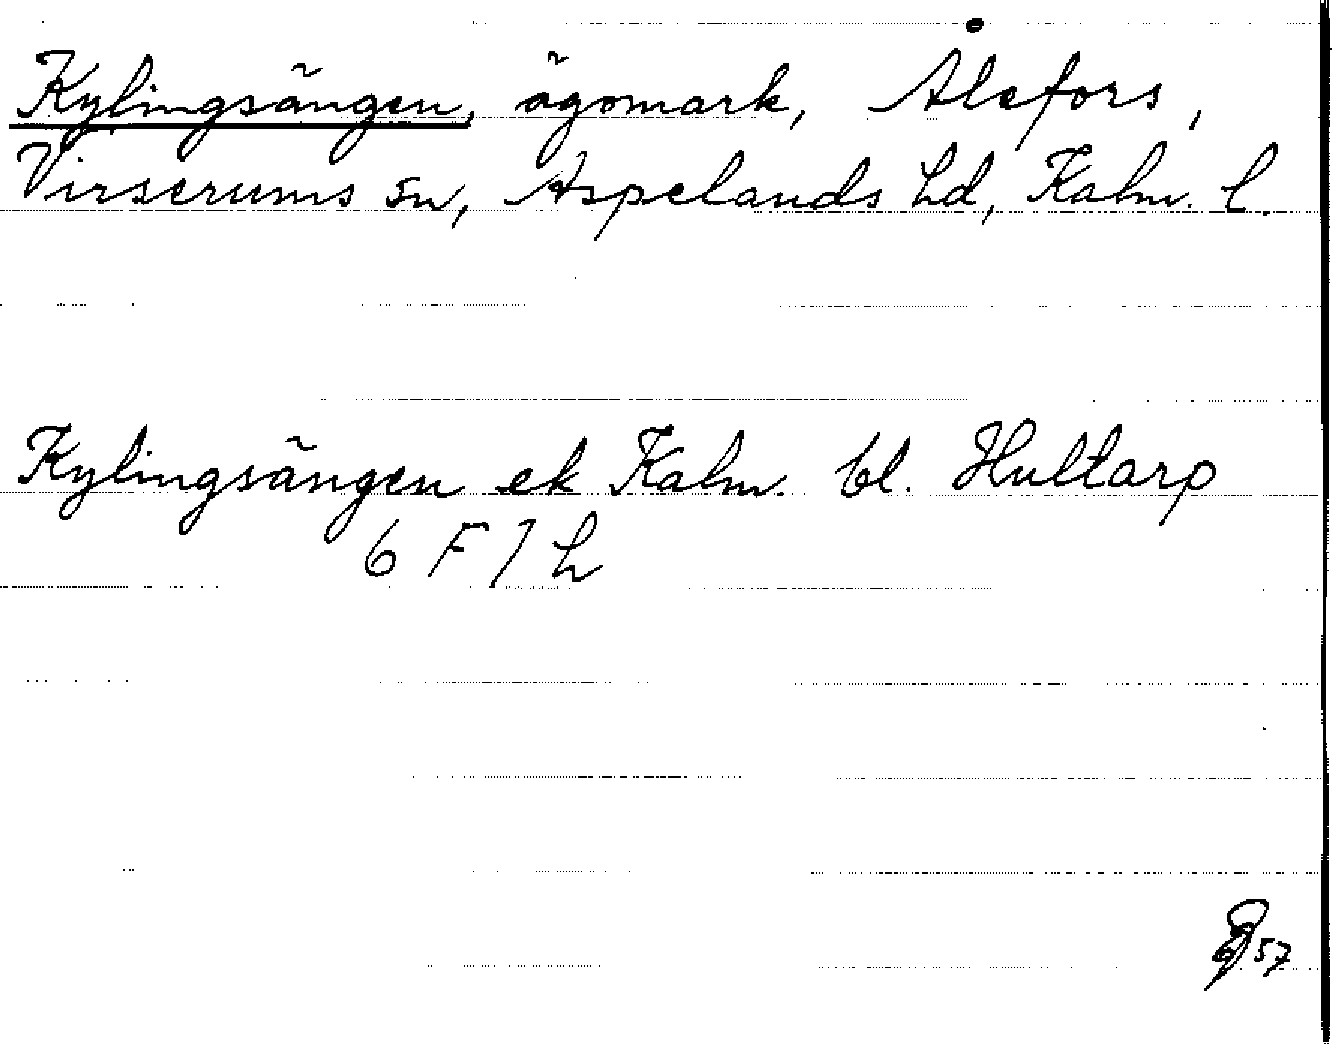 Kylingsängen, ägomark, Ålefors,
Virserums sn, Aspelands hd, Kalm. l.
Kylingsängen ek Kalm. bl. Hultarp
6 F 7 h
57